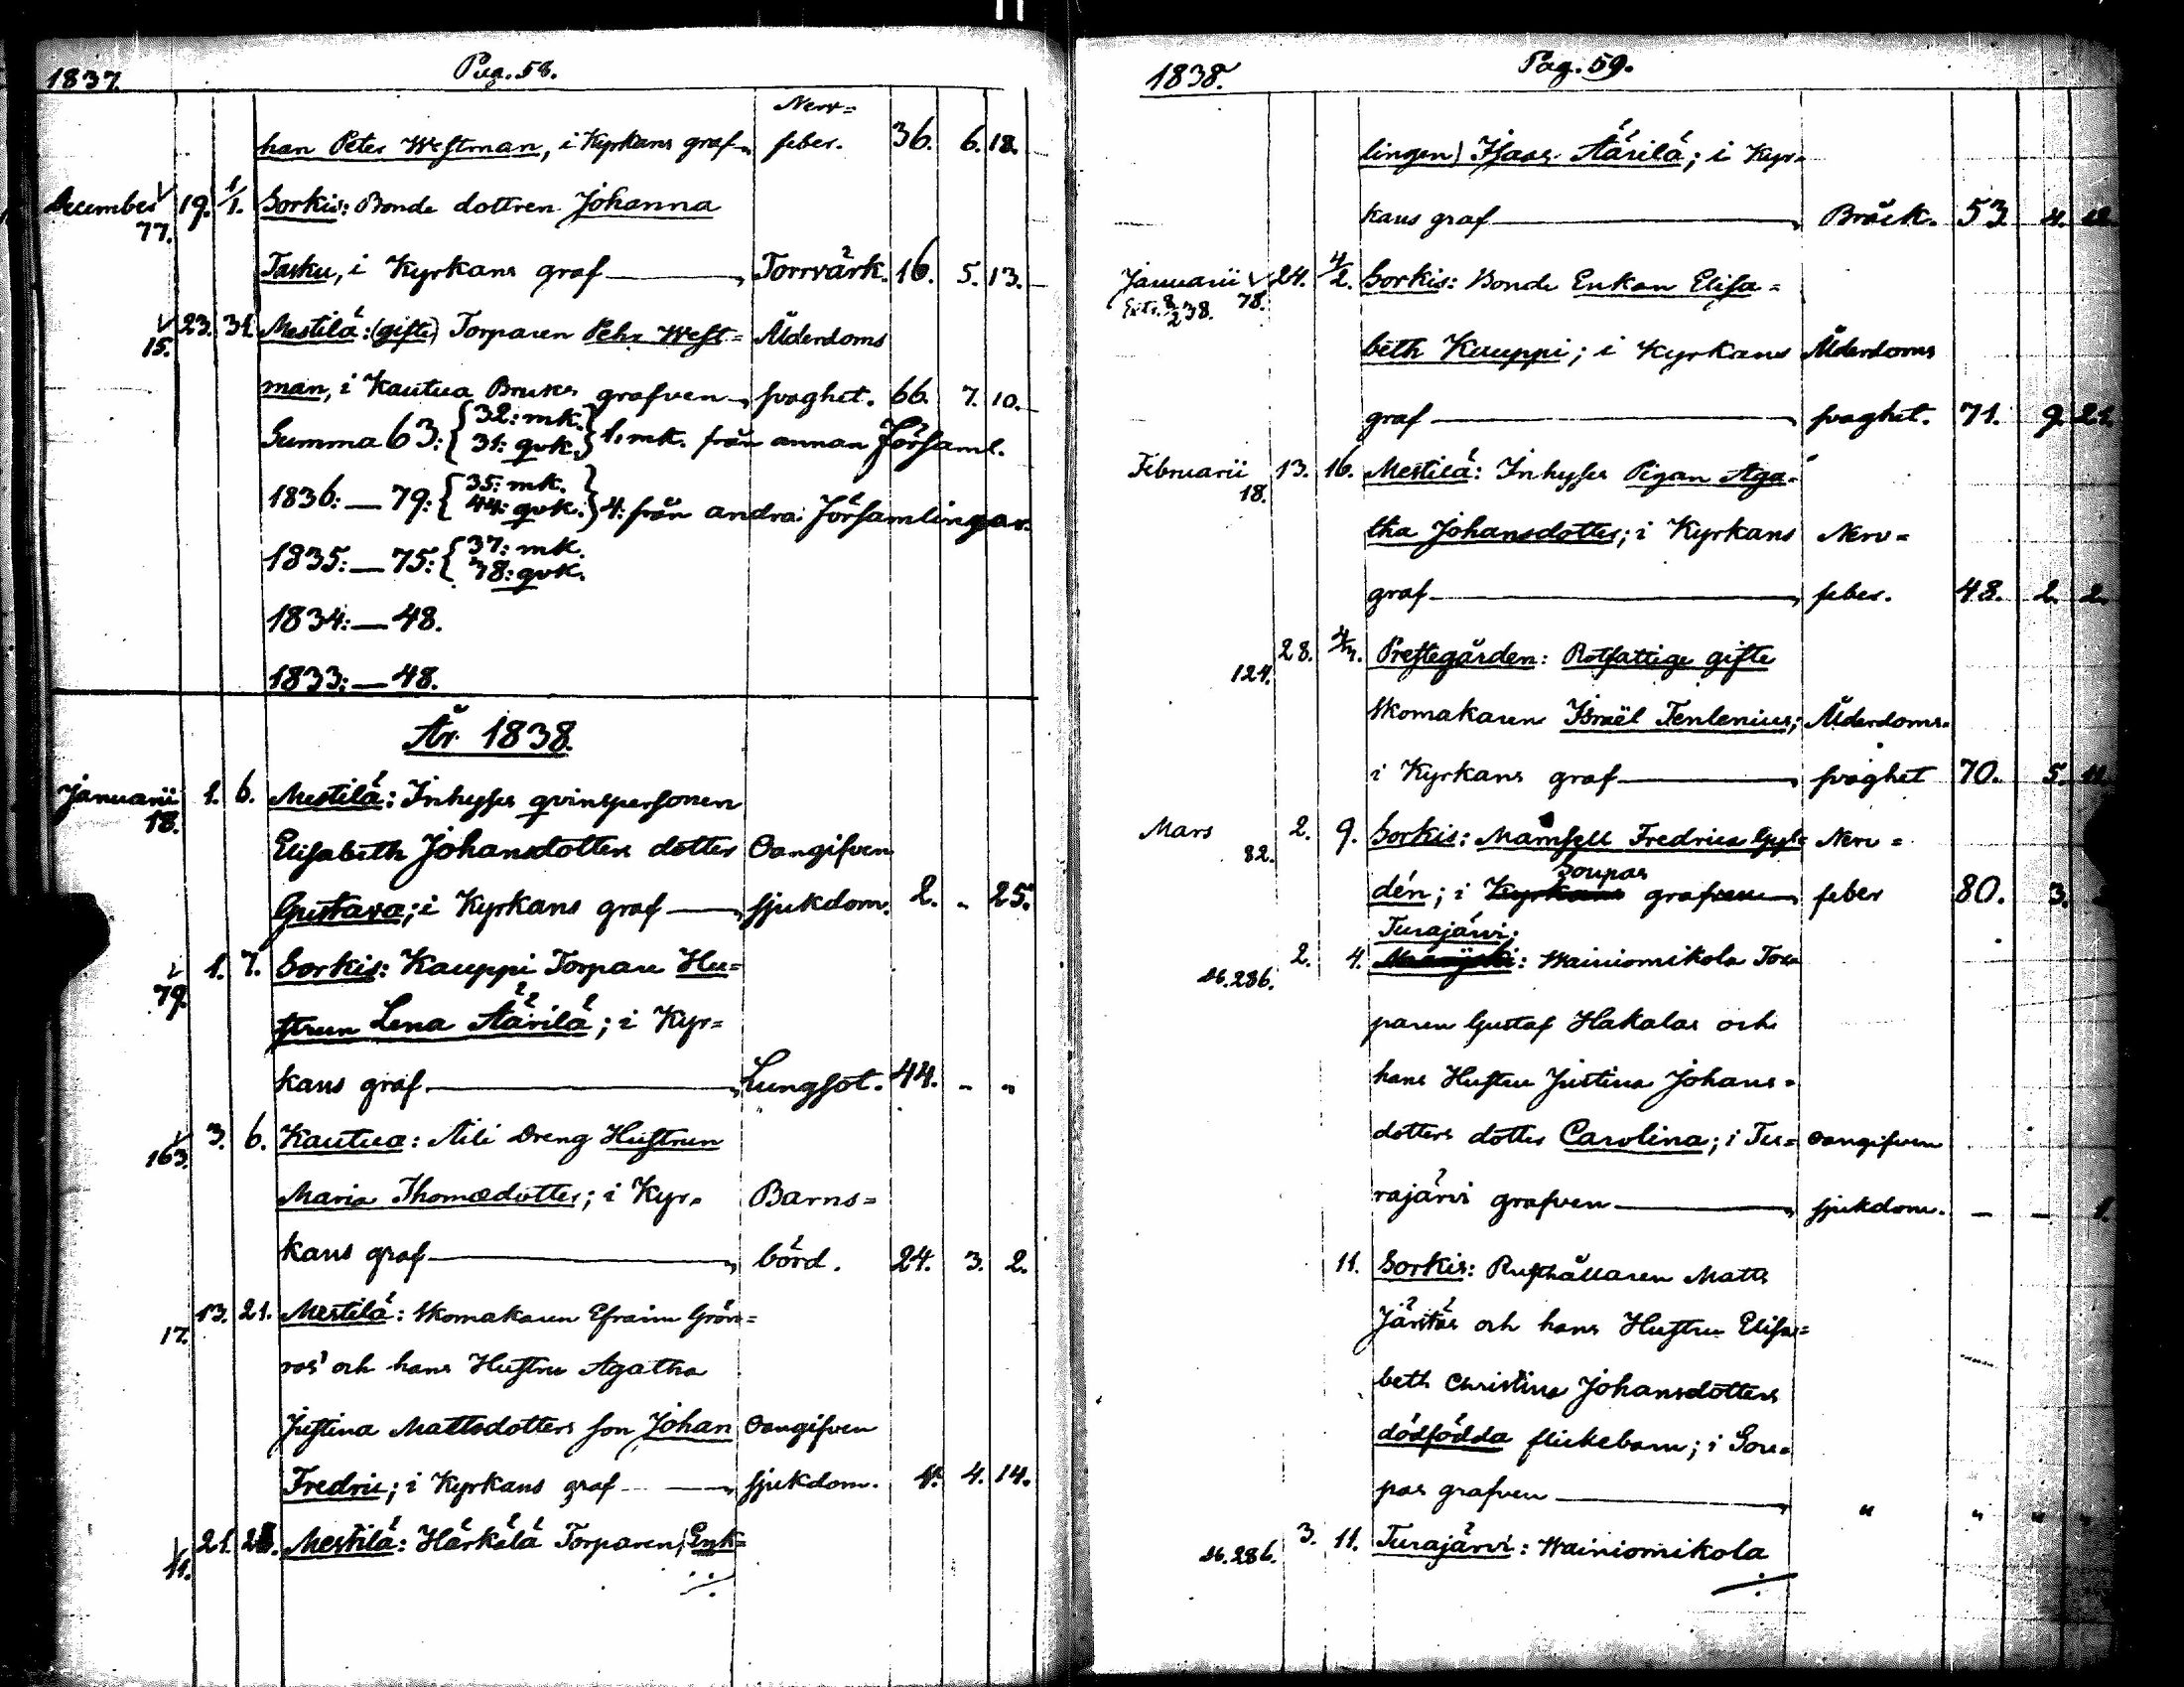 1837.
Pag. 58.
Nerv=
han Peter Westman, i Kyrkans graf feber. 36. 6. 18.
December 19. 1/1. Sorkis: Bonde dottren Johanna
77.
Tasku, i Kyrkans graf Torrvärk. 16. 5. 13.
23. 31. Mestilä: (gifte) Torparen Pehr West= Ålderdoms
15.
man, i Kautua Bruks grafven svaghet. 66. 7. 10.
Summa 63: { 32: mk. 31: qvk. } 1, mk. från annan Församl.
1836: — 79: { 35: mk. 44: qvk. } 4: från andra Församlingar.
1835: — 75: { 37: mk. 38: qvk.
1834: — 48.
1833: — 48.
År 1838.
Januarii 1. 6. Mestilä: Inhyses qvinspersonen
18.
Elisabeth Johansdotters dotter Oangifven
Gustava; i Kyrkans graf sjukdom. 2. „ 25.
1. 7. Sorkis: Kauppi Torpare Hu=
79.
strun Lena Äärilä; i Kyr=
kans graf Lungsot. 44. „ „
3. 6. Kautua: Äili Dreng Hustrun
163.
Maria Thomædotter; i Kyr= Barns=
kans graf börd. 24. 3. 2.
13. 21. Mestilä: Skomakaren Efraim Grön=
17.
ros' och hans Hustru Agatha
Justina Mattsdotters son Johan Oangifven
Fredric; i Kyrkans graf sjukdom. 1. 4. 14.
21. Mestilä: Härkälä Torparen, Enk=
11.
1838.
Pag. 59.
lingen) Isaac Äärilä; i Kyr=
kans graf Bråck. 53. 4. 12.
Januarii 24. 4/2. Sorkis: Bonde Enkan Elisa=
78.
beth Kauppi; i Kyrkans Ålderdoms
graf svaghet. 71. 9. 21.
Februarii 13. 16. Mestilä: Inhyses Pigan Aga=
18.
tha Johansdotter; i Kyrkans Nerv=
graf feber. 48. 2. 2.
28. 4/3. Prestegården: Rotfattige gifte
124.
Skomakaren Israël Tenlenius; Ålderdoms=
i Kyrkans graf svaghet 70. 5. 11.
Mars 2. 9. Sorkis: Mamsell Fredrica Gyl= Nerv=
82.
Soupas
dén; i Kyrkans grafven feber 80. 3.
Turajärvi:
2. 4. : Wainiomikola Tor=
M. 286.
paren Gustaf Hakalas och
hans Hustru Justina Johans=
dotters dotter Carolina; i Tu= Oangifven
rajärvi grafven sjukdom. — — 1.
11. Sorkis: Rusthållaren Matts
Jäntäs och hans Hustru Elisa=
beth Christina Johansdotters
dödfödda flickebarn; i Sou=
pas grafven „ „ „ „
3. 11. Turajärvi: Wainiomikola
M. 286.